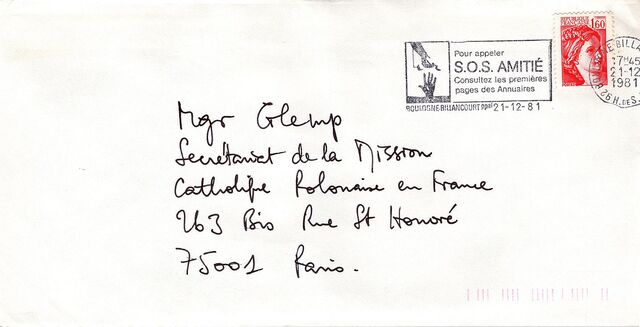 1.60
Pour appeler
S.O.S. AMITIÉ
Consultez les premières
pages des Annuaires
BOULOGNE BILLANCOURT PPAL 21-12-81
E BILLA
17H45
21-12
1981
92 H. DE S.
Mgr Glemp
Secrétariat de la Mission
Catholique Polonaise en France
263 Bis Rue St Honoré
75001 Paris.